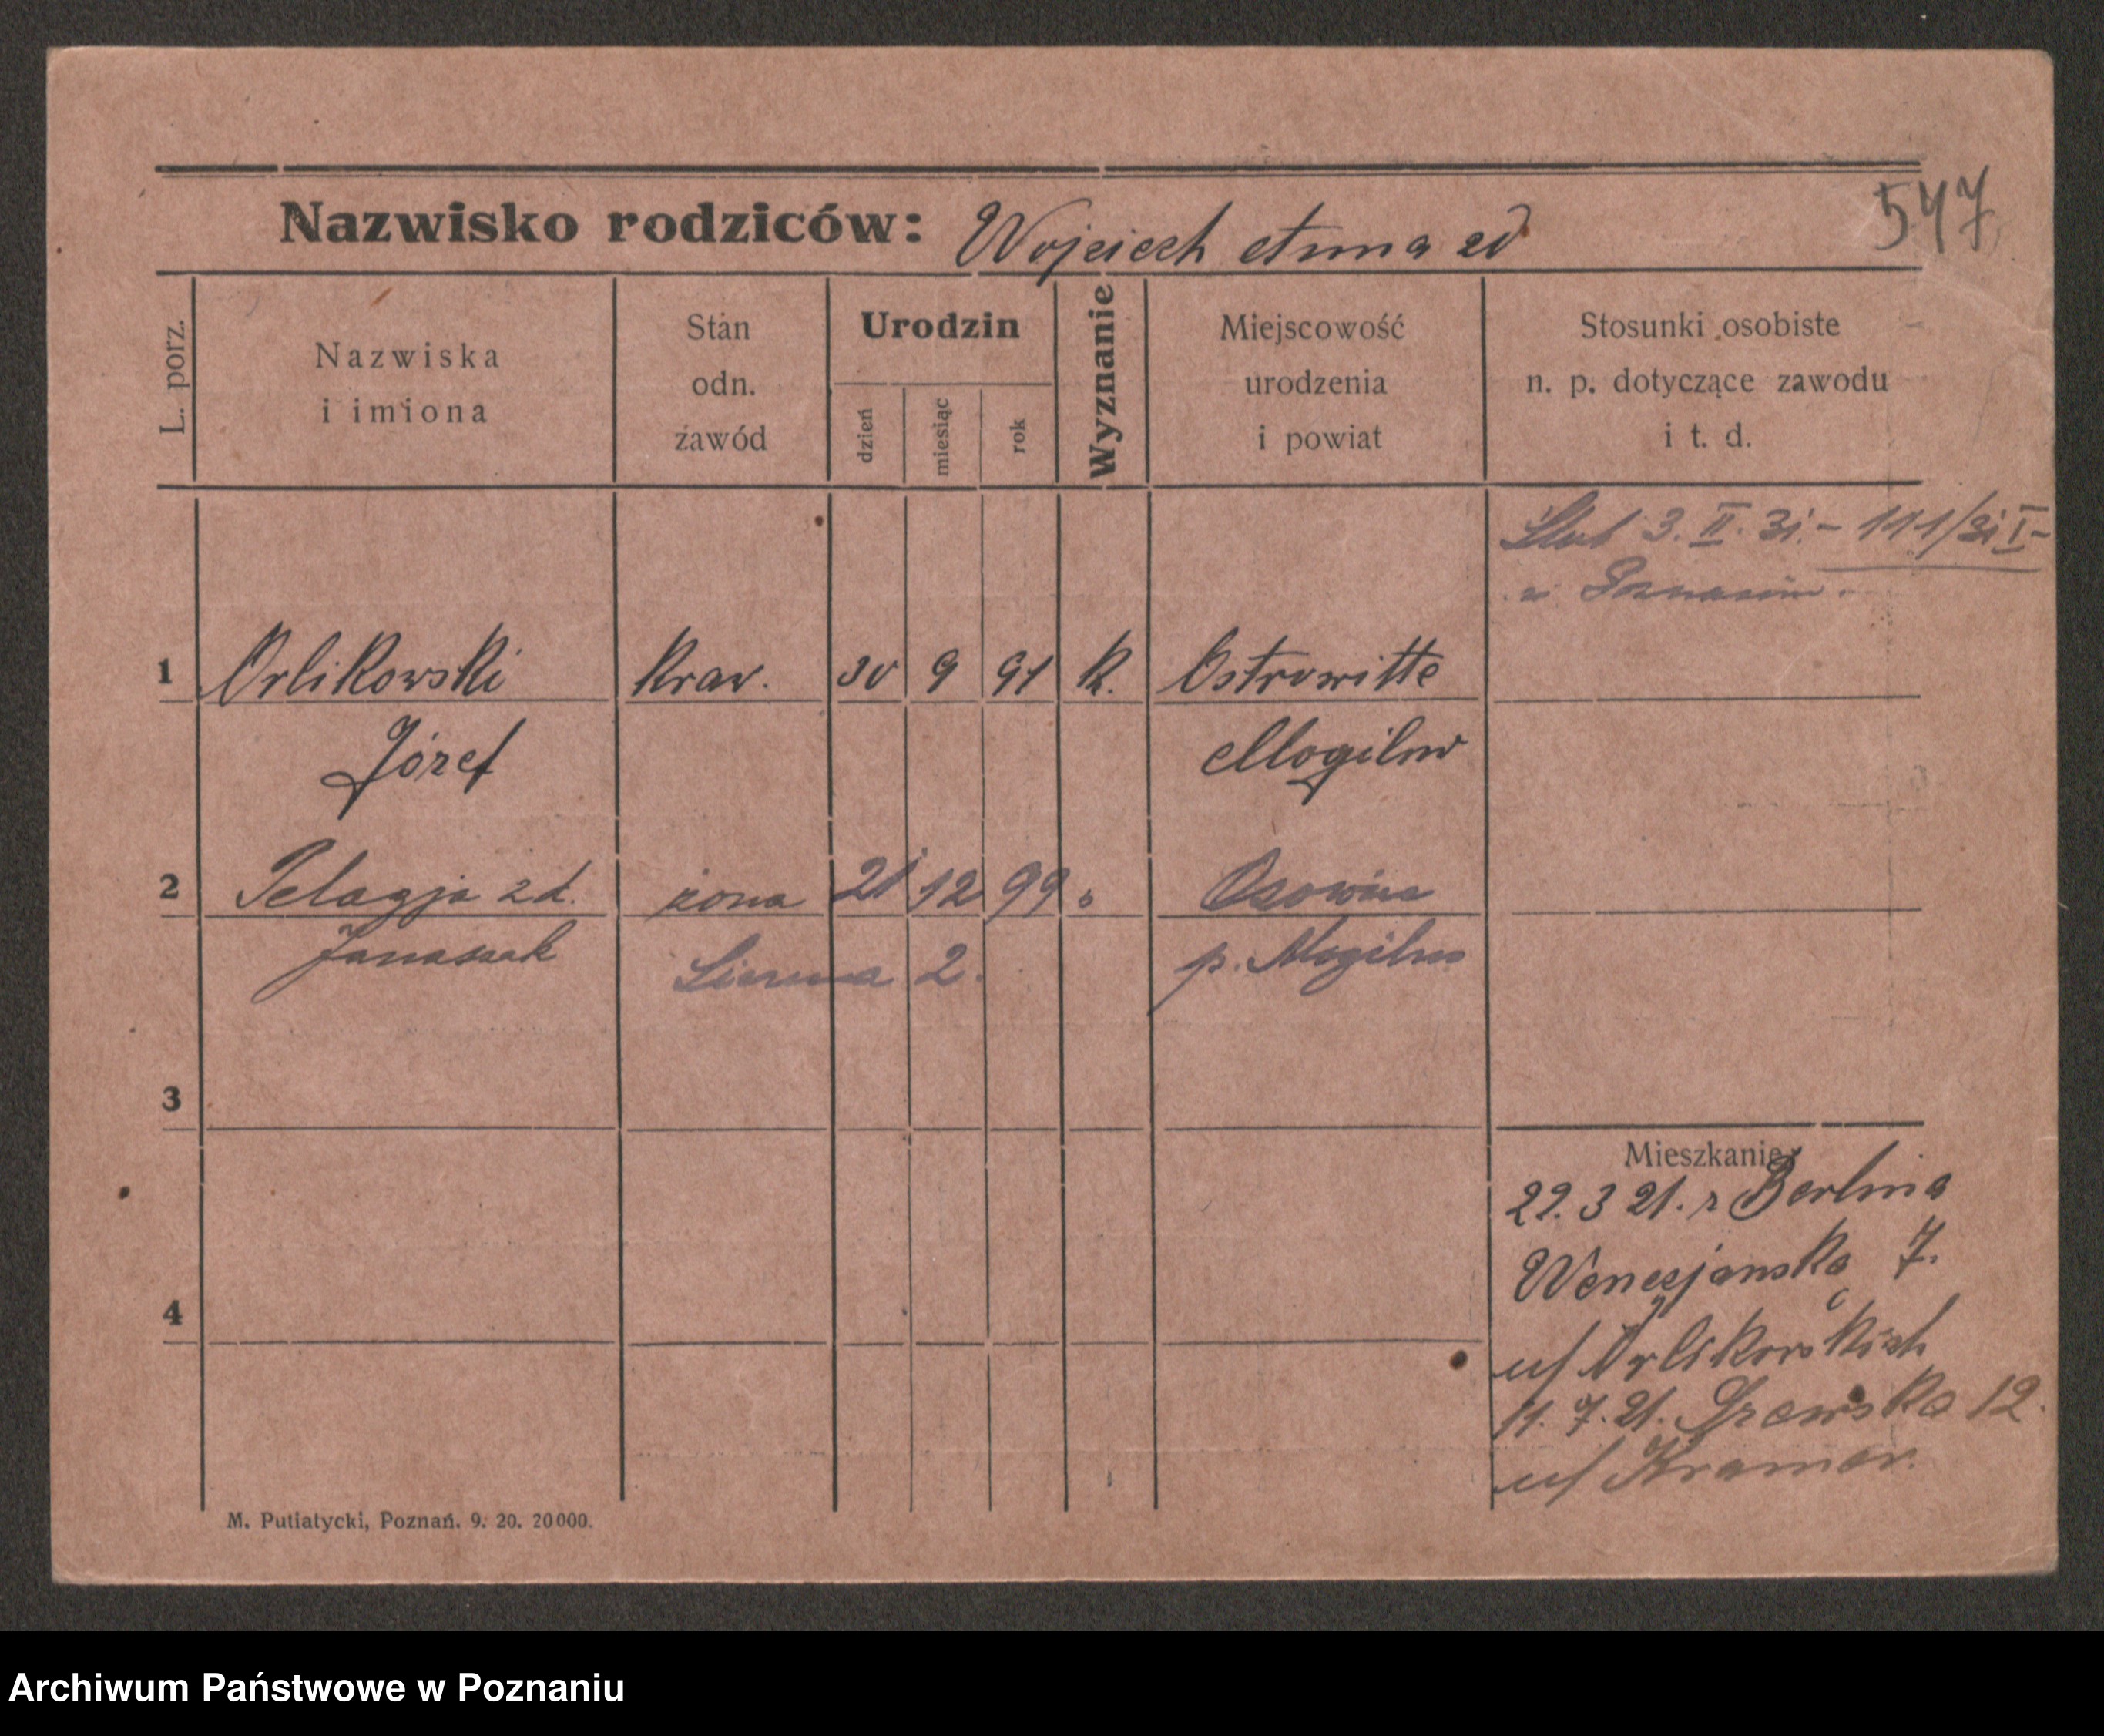 547
Nazwisko rodziców: Wojciech Anna zd
L. porz.
Nazwiska
i imiona
Stan
odn.
zawód
Urodzin
dzień
miesiąc
rok
Wyznanie
Miejscowość
urodzenia
i powiat
Stosunki osobiste
n. p. dotyczące zawodu
i t. d.
Ślub 3. II. 31. – 111/31 I –
w Poznaniu.
1 Orlikowski kraw. 30 9 91 k. Ostrowitte
Józef Mogilno
2 Pelagja zd. żona 21 12 99 "
Janaszak p. Mogilno
2.
3
4
Mieszkanie
22. 3 21. z Berlina
Wenecjanska 7.
u/ Orlikowskich
11. 7. 21. 12.
u/ Kramer.
M. Putiatycki, Poznań. 9. 20. 20000.
Archiwum Państwowe w Poznaniu